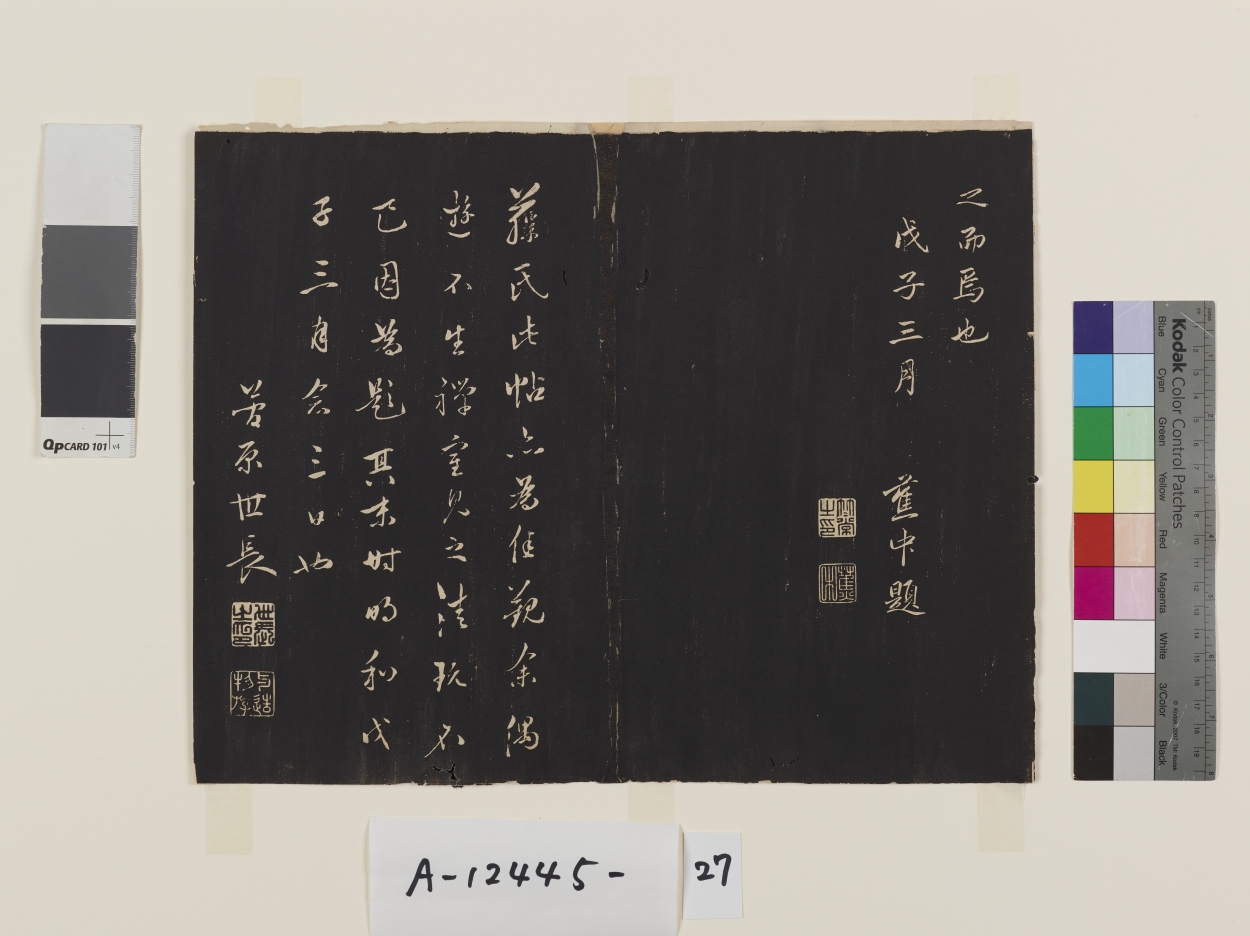 之而爲也
戊子三月 蕉中題
藤氏此帖亦為佳観余偶
遊不生禅室見之清玩不
已因為題其末时明和戊
子三月念三日也
菅原世長
A-12445-
27
QPCARD 101 v4
Kodak Color Control Patches
Blue Cyan Green Yellow Red Magenta White 3/Color Black
© Kodak, 2007 TM: Kodak